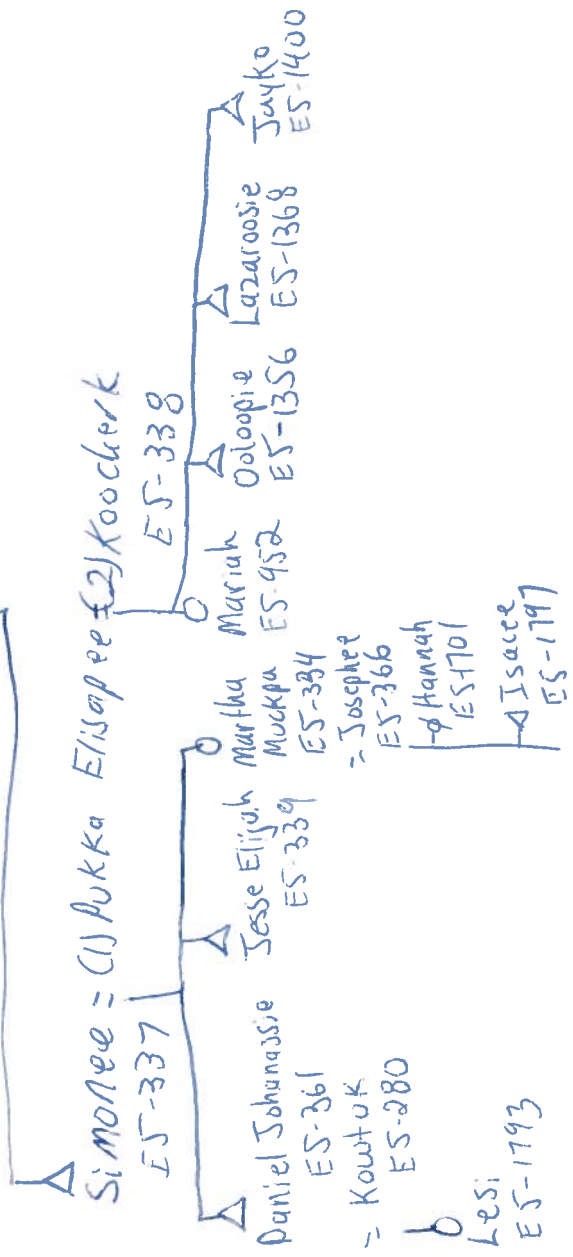 Simonee = (1) Pukka Elisapee = (2) Koocherk
E5-337
E5-338
Daniel Johanassie
E5-361
= Kowtuk
E5-280
Lesi
E5-1793
Jesse Elijah
E5-339
Martha
Muckpa
E5-334
= Josephee
E5-366
Hannah
E5-1701
Isacee
E5-1797
Mariah
E5-952
Ooloopie
E5-1356
Lazaroosie
E5-1368
Jayko
E5-1400